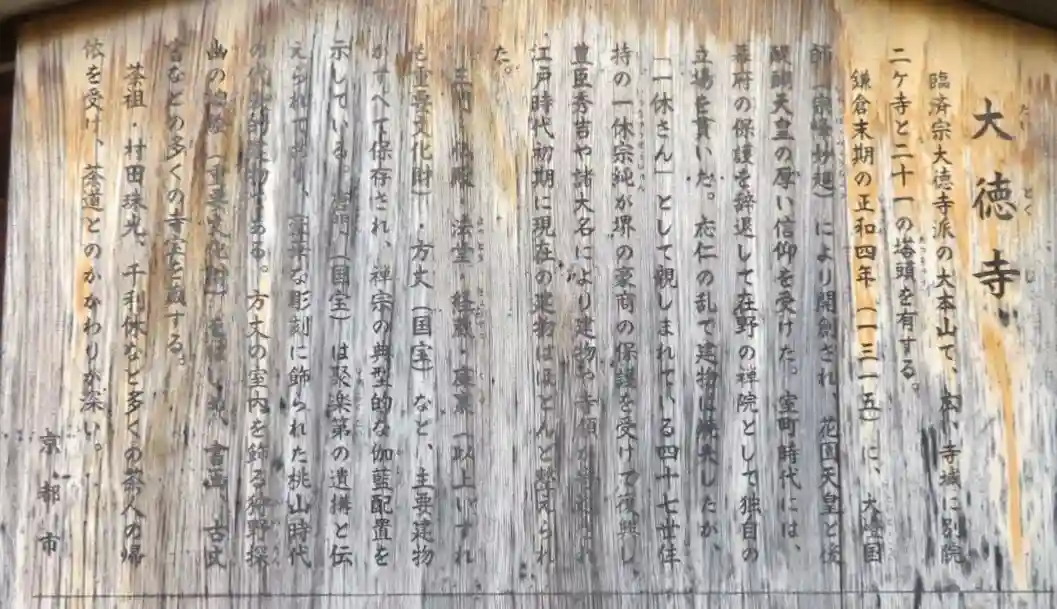 大徳寺
臨済宗大徳寺派の大本山で、広い寺域に別院
二ヶ寺と二十一の塔頭を有する。
鎌倉末期の正和四年（一三一五）に、大燈国
師（宗峰妙超）により開創され、花園天皇と後
醍醐天皇の厚い信仰を受けた。室町時代には、
幕府の保護を辞退して在野の禅院として独自の
立場を貫いた。応仁の乱で建物は焼失したが、
「一休さん」として親しまれている四十七世住
持の一休宗純が堺の豪商の保護を受けて復興し、
豊臣秀吉や諸大名により建物や寺領が
江戸時代初期に現在の建物はほとんど整えられ
た。
三門・仏殿・法堂・経蔵・庫裏（以上いずれ
も重要文化財）・方丈（国宝）など、主要建物
がすべて保存され、禅宗の典型的な伽藍配置を
示している。唐門（国宝）は聚楽第の遺構と伝
えられており、な彫刻に飾られた桃山時代
の代表的建物である。方丈の室内を飾る狩野探
幽の（重要文化財）をはじめ、書画、古文
書などの多くの寺宝を蔵する。
茶祖・村田珠光、千利休など多くの茶人の帰
依を受け、茶道とのかかわりが深い。
京都市